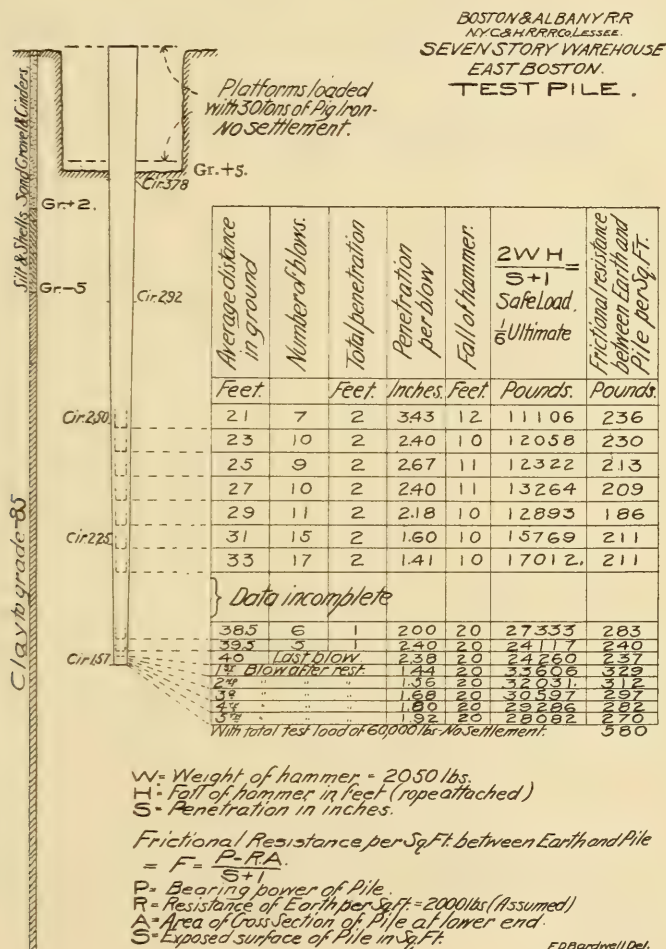 BOSTON & ALBANY R.R
N.Y.C.& H.R.R.R Co. LESSEE.
SEVEN STORY WAREHOUSE
EAST BOSTON.
TEST PILE.
Platforms loaded
with 30 tons of Pig Iron-
No settlement.
Silt & Shells. Sand Gravel & Cinders.
Cir. 378
Gr. +5.
Gr. +2.
Gr. -5
Cir. 292
Cir. 250
Cir. 225
Cir. 157
Clay to grade -85
Average distance in ground
Number of blows.
Total penetration
Penetration per blow
Fall of hammer.
2WH
S+1
=
Safe Load.
1/6 Ultimate
Frictional resistance between Earth and Pile per Sq. Ft.
Feet. Feet. Inches. Feet. Pounds. Pounds.
21 7 2 3.43 12 11106 236
23 10 2 2.40 10 12058 230
25 9 2 2.67 11 12322 213
27 10 2 2.40 11 13264 209
29 11 2 2.18 10 12893 186
31 15 2 1.60 10 15769 211
33 17 2 1.41 10 17012. 211
} Data incomplete
38.5 6 1 2.00 20 27333 283
39.5 5 1 2.40 20 24117 240
40 Last blow 2.38 20 24260 237
1st Blow after rest. 1.44 20 33606 329
2nd " " 1.56 20 32031. 312
3d " " 1.68 20 30597 297
4th " " 1.80 20 29286 282
5th " " 1.92 20 28082 270
With total test load of 60,000 lbs-No settlement. 580
W= Weight of hammer = 2050 lbs.
H= Fall of hammer in feet (rope attached)
S= Penetration in inches.
Frictional Resistance per Sq. Ft. between Earth and Pile
= F = P-RA.
S+1
P= Bearing power of Pile.
R= Resistance of Earth per Sq. Ft. = 2000 lbs (Assumed)
A= Area of Cross Section of Pile at lower end.
S= Exposed surface of Pile in Sq. Ft.
F.D. Bardwell Del.